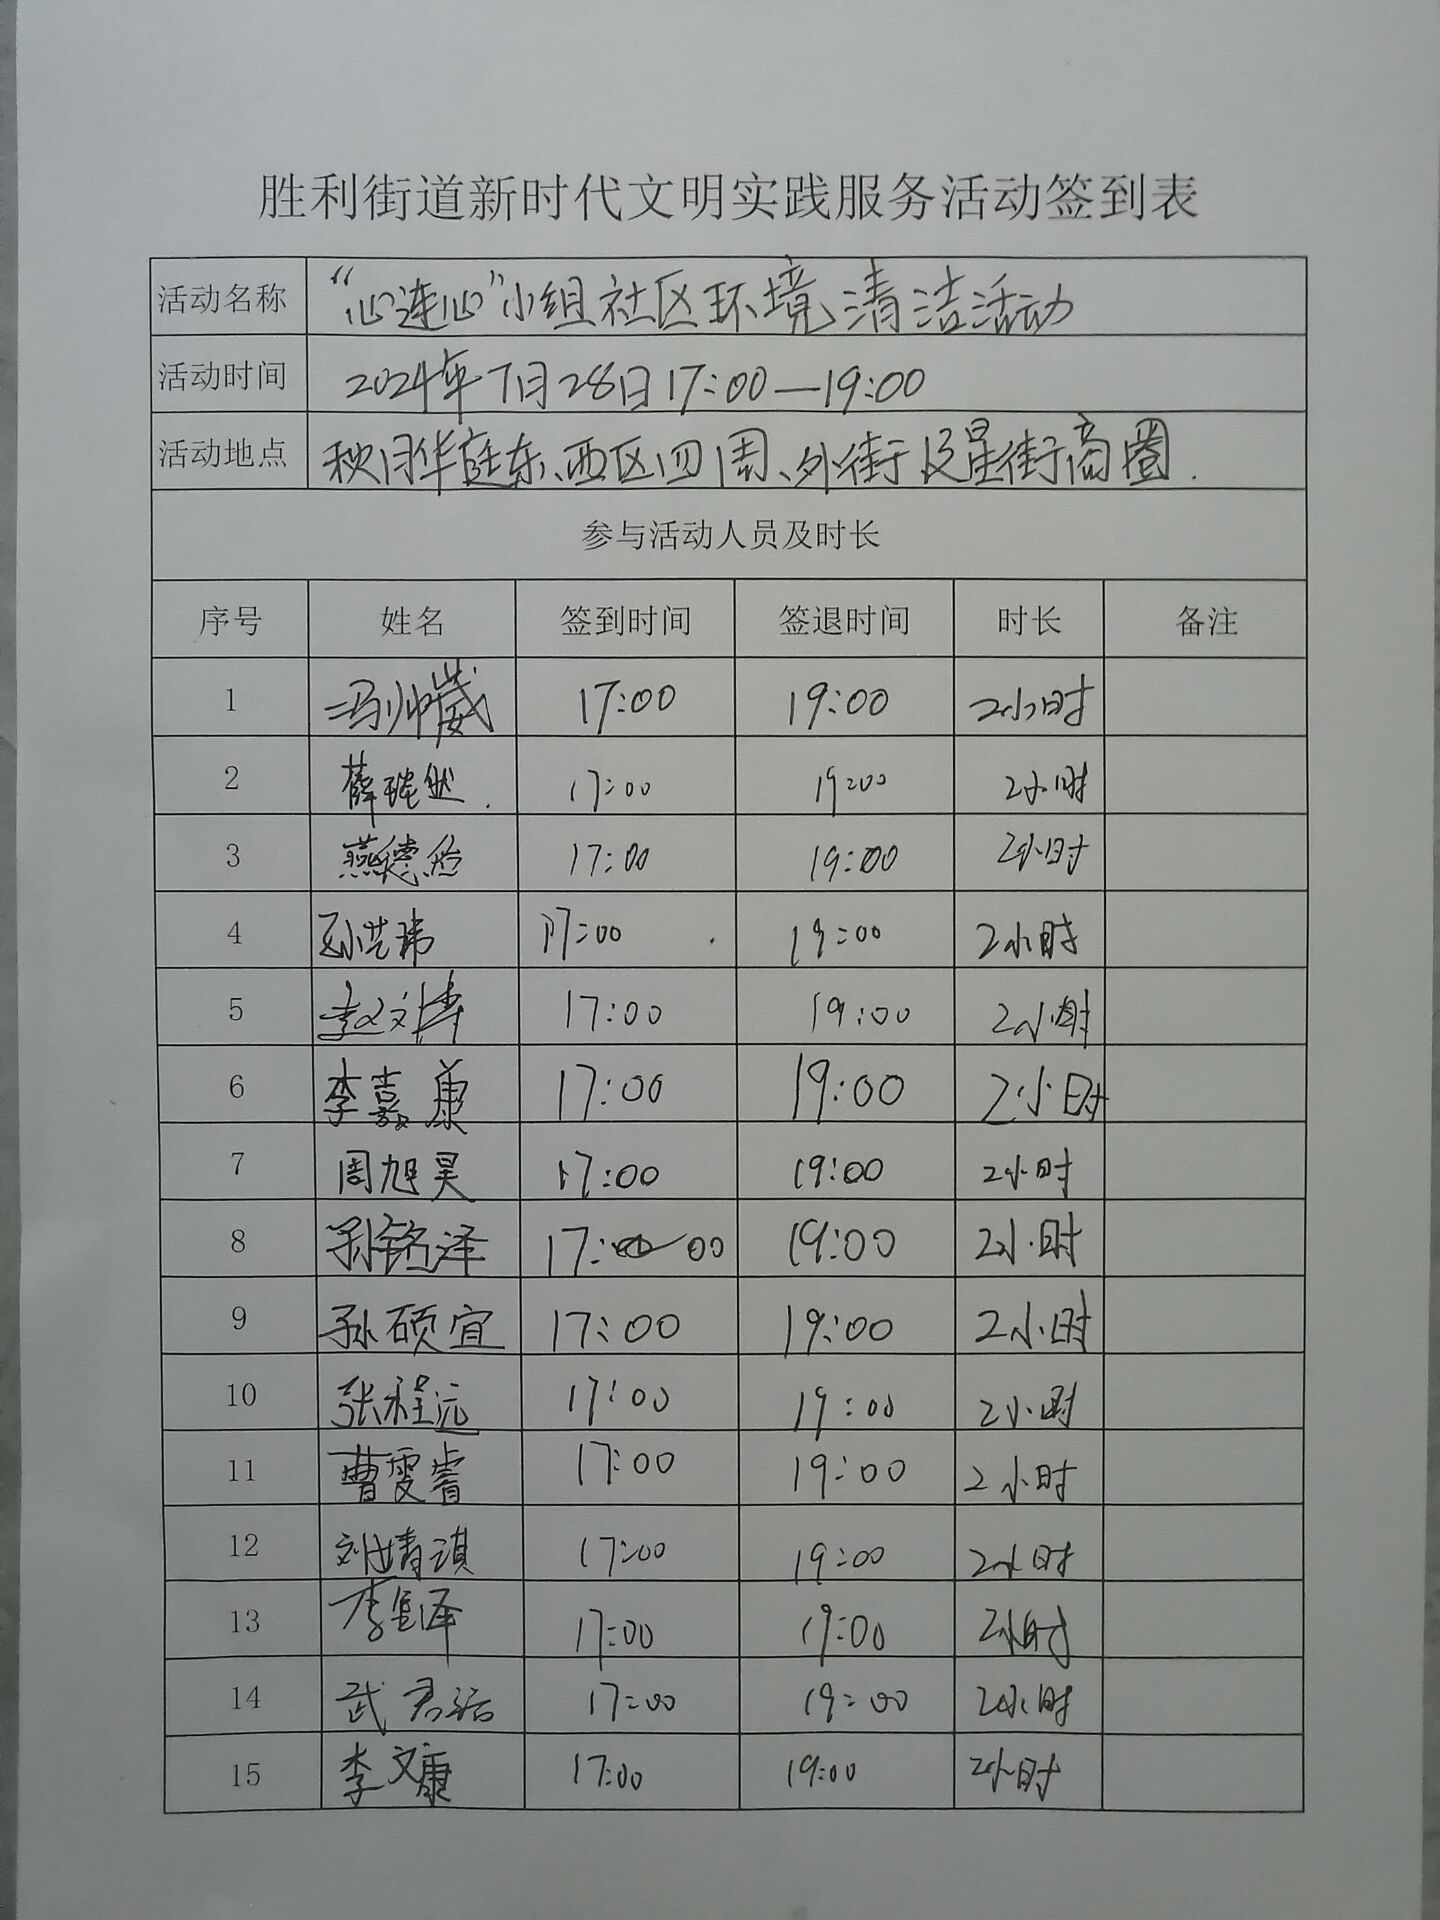 胜利街道新时代文明实践服务活动签到表
活动名称 “心连心”小组社区环境清洁活动
活动时间 2024年7月28日17:00—19:00
活动地点 秋月华庭东、西区四周、外街及星街商圈.
参与活动人员及时长
序号 姓名 签到时间 签退时间 时长 备注
1 冯帅崴 17:00 19:00 2小时
2 薛琉然. 17:00 19:00 2小时
3 燕德 17:00 19:00 2小时
4 孙芸玮 17:00 19:00 2小时
5 赵文涛 17:00 19:00 2小时
6 李嘉康 17:00 19:00 2小时
7 周旭昊 17:00 19:00 2小时
8 孙铭泽 17:00 19:00 2小时
9 孙硕宜 17:00 19:00 2小时
10 张程远 17:00 19:00 2小时
11 曹雯睿 17:00 19:00 2小时
12 刘靖淇 17:00 19:00 2小时
13 李泽 17:00 19:00 2小时
14 武君 17:00 19:00 2小时
15 李文康 17:00 19:00 2小时